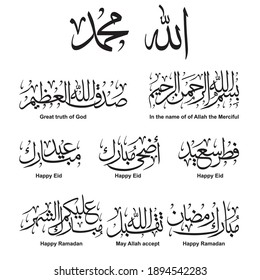 الله محمد
بسم الله الرحمن الرحيم
In the name of of Allah the Merciful
صدق الله العظيم
Great truth of God
فطر سعيد
Happy Eid
أضحى مبارك
Happy Eid
عيد مبارك
Happy Eid
مبارك رمضان
Happy Ramadan
تقبل الله
May Allah accept
مبارك عليكم الشهر
Happy Ramadan
shutterstock.com · 1894542283